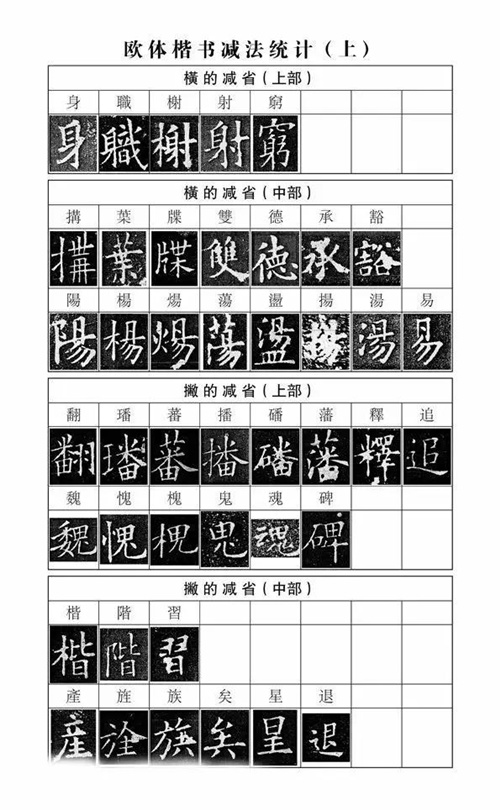 欧体楷书减法统计（上）
橫的减省（上部）
身 職 榭 射 窮
身 職 榭 射 窮
橫的减省（中部）
搆 葉 牒 雙 德 承 豁
搆 葉 牒 雙 德 承 豁
陽 楊 煬 蕩 盪 揚 湯 易
陽 楊 煬 蕩 盪 揚 湯 易
撇的减省（上部）
翻 璠 蕃 播 磻 藩 釋 追
翻 璠 蕃 播 磻 藩 釋 追
魏 愧 槐 鬼 魂 碑
魏 愧 槐 鬼 魂 碑
撇的减省（中部）
楷 階 習
楷 階 習
產 旌 族 矣 星 退
產 旌 族 矣 星 退